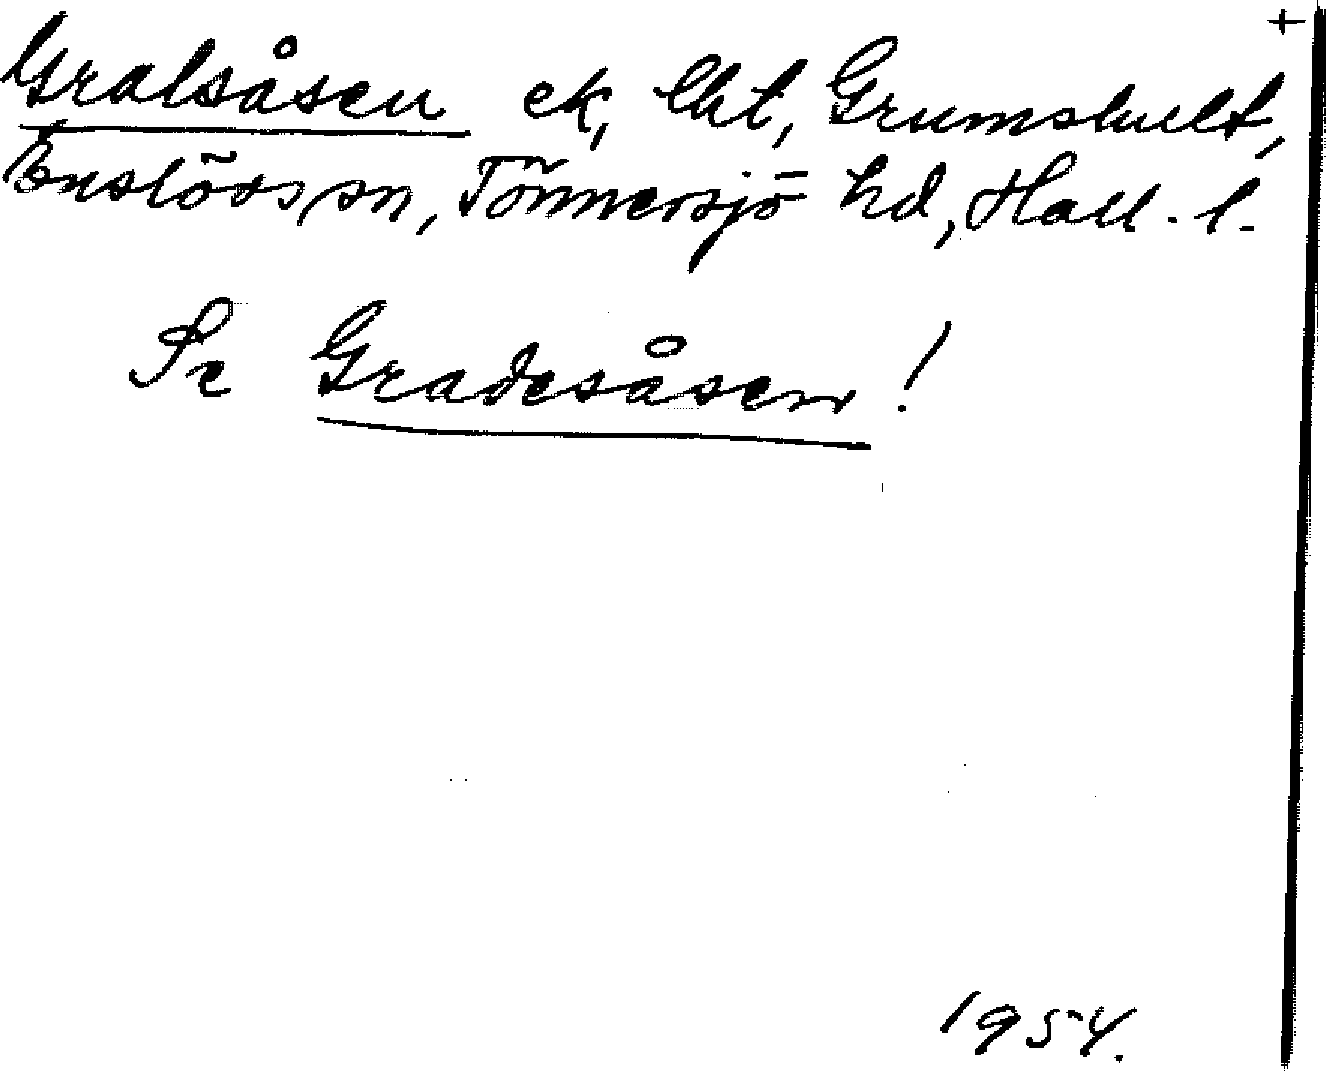 +
Gralsåsen ek, lht, Grumshult,
Enslövs sn, Tönnersjö hd, Hall. l.
Se Gradesåsen!
1954.